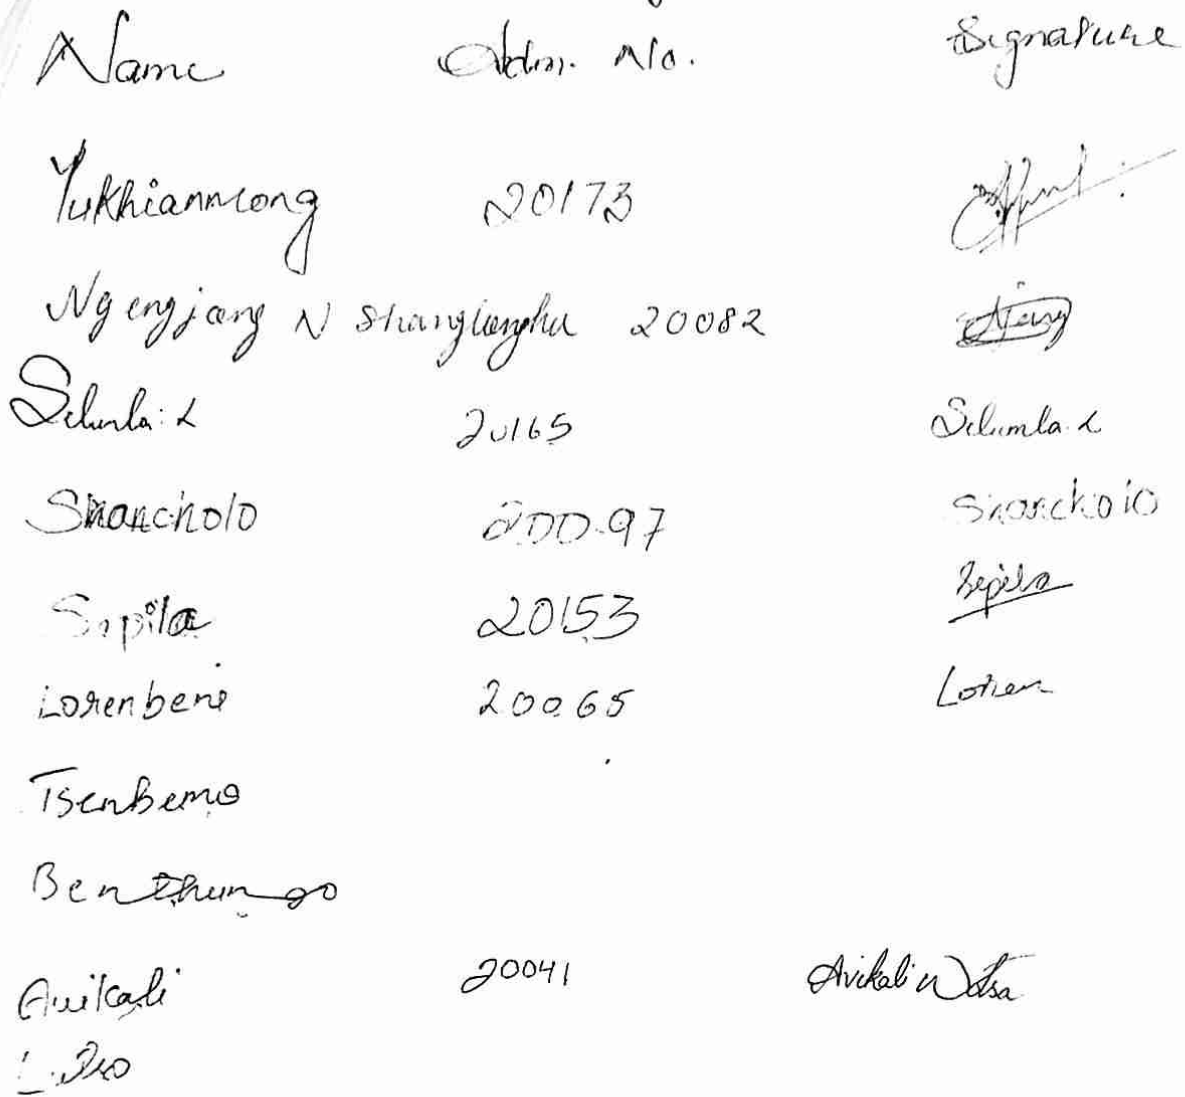 Name Adm. No. Signature
Yukhianmong 20173
Ngengjang N Shanglenghu 20082 Njang
Selumla. L 20165 Selumla. L
Shancholo 20097 Shancholo
Sepila 20153 Sepila
Lorenbeni 20065 Loren
Tsenbemo
Benthungo
Avikali 20041 Avikali
L.